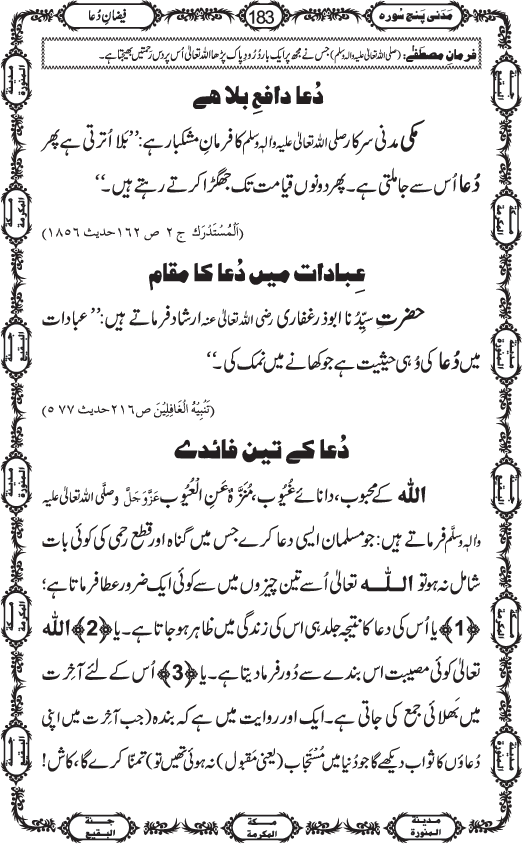 مَدَنی پنج سورہ
183
فیضانِ دُعا
فرمانِ مصطفٰے: (صلی اللہ تعالیٰ علیہ والہٖ وسلم) جس نے مجھ پر ایک بار دُرُودِ پاک پڑھا اللہ تعالیٰ اُس پر دس رحمتیں بھیجتا ہے۔
دُعا دافعِ بلا ھے
مکی مدنی سرکار صلی اللہ تعالیٰ علیہ والہٖ وسلم کا فرمانِ مشکبار ہے: ’’بَلا اُترتی ہے پھر
دُعا اُس سے جا ملتی ہے۔ پھر دونوں قیامت تک جھگڑا کرتے رہتے ہیں۔‘‘
(اَلْمُسْتَدْرَك ج ٢ ص ١٦٢ حدیث ١٨٥٦)
عِبادات میں دُعا کا مقام
حضرتِ سیِّدُنا ابوذر غفاری رضی اللہ تعالیٰ عنہ ارشاد فرماتے ہیں: ’’عبادات
میں دُعا کی وُہی حیثیت ہے جو کھانے میں نمک کی۔‘‘
(تَنْبِیْہُ الْغَافِلِیْنَ ص ٢١٦ حدیث ٥٧٧)
دُعا کے تین فائدے
اللہ کے محبوب، دانائے غُیُوب، مُنَزَّہٌ عَنِ الْعُیُوب عَزَّوَجَلَّ وصلَّی اللہ تعالیٰ علیہ
والہٖ وسلَّم فرماتے ہیں: جو مسلمان ایسی دعا کرے جس میں گناہ اور قطع رحمی کی کوئی بات
شامل نہ ہو تو اللہ تعالیٰ اُسے تین چیزوں میں سے کوئی ایک ضرور عطا فرماتا ہے؛
﴿1﴾ یا اُس کی دعا کا نتیجہ جلد ہی اس کی زندگی میں ظاہر ہو جاتا ہے۔ یا ﴿2﴾ اللہ
تعالیٰ کوئی مصیبت اس بندے سے دُور فرما دیتا ہے۔ یا ﴿3﴾ اُس کے لئے آخِرت
میں بَھلائی جمع کی جاتی ہے۔ ایک اور روایت میں ہے کہ بندہ (جب آخِرت میں اپنی
دُعاؤں کا ثواب دیکھے گا جو دُنیا میں مُسْتَجاب (یعنی مَقبول) نہ ہوئی تھیں تو) تمنّا کرے گا، کاش!
مدینۃ المنورۃ
مکۃ المکرمۃ
جنۃ البقیع
مدینۃ المنورۃ
مکۃ المکرمۃ
جنۃ البقیع
جنۃ البقیع
مکۃ المکرمۃ
مدینۃ المنورۃ
جنۃ البقیع
مکۃ المکرمۃ
مدینۃ المنورۃ
جنۃ البقیع
مکۃ المکرمۃ
مدینۃ المنورۃ